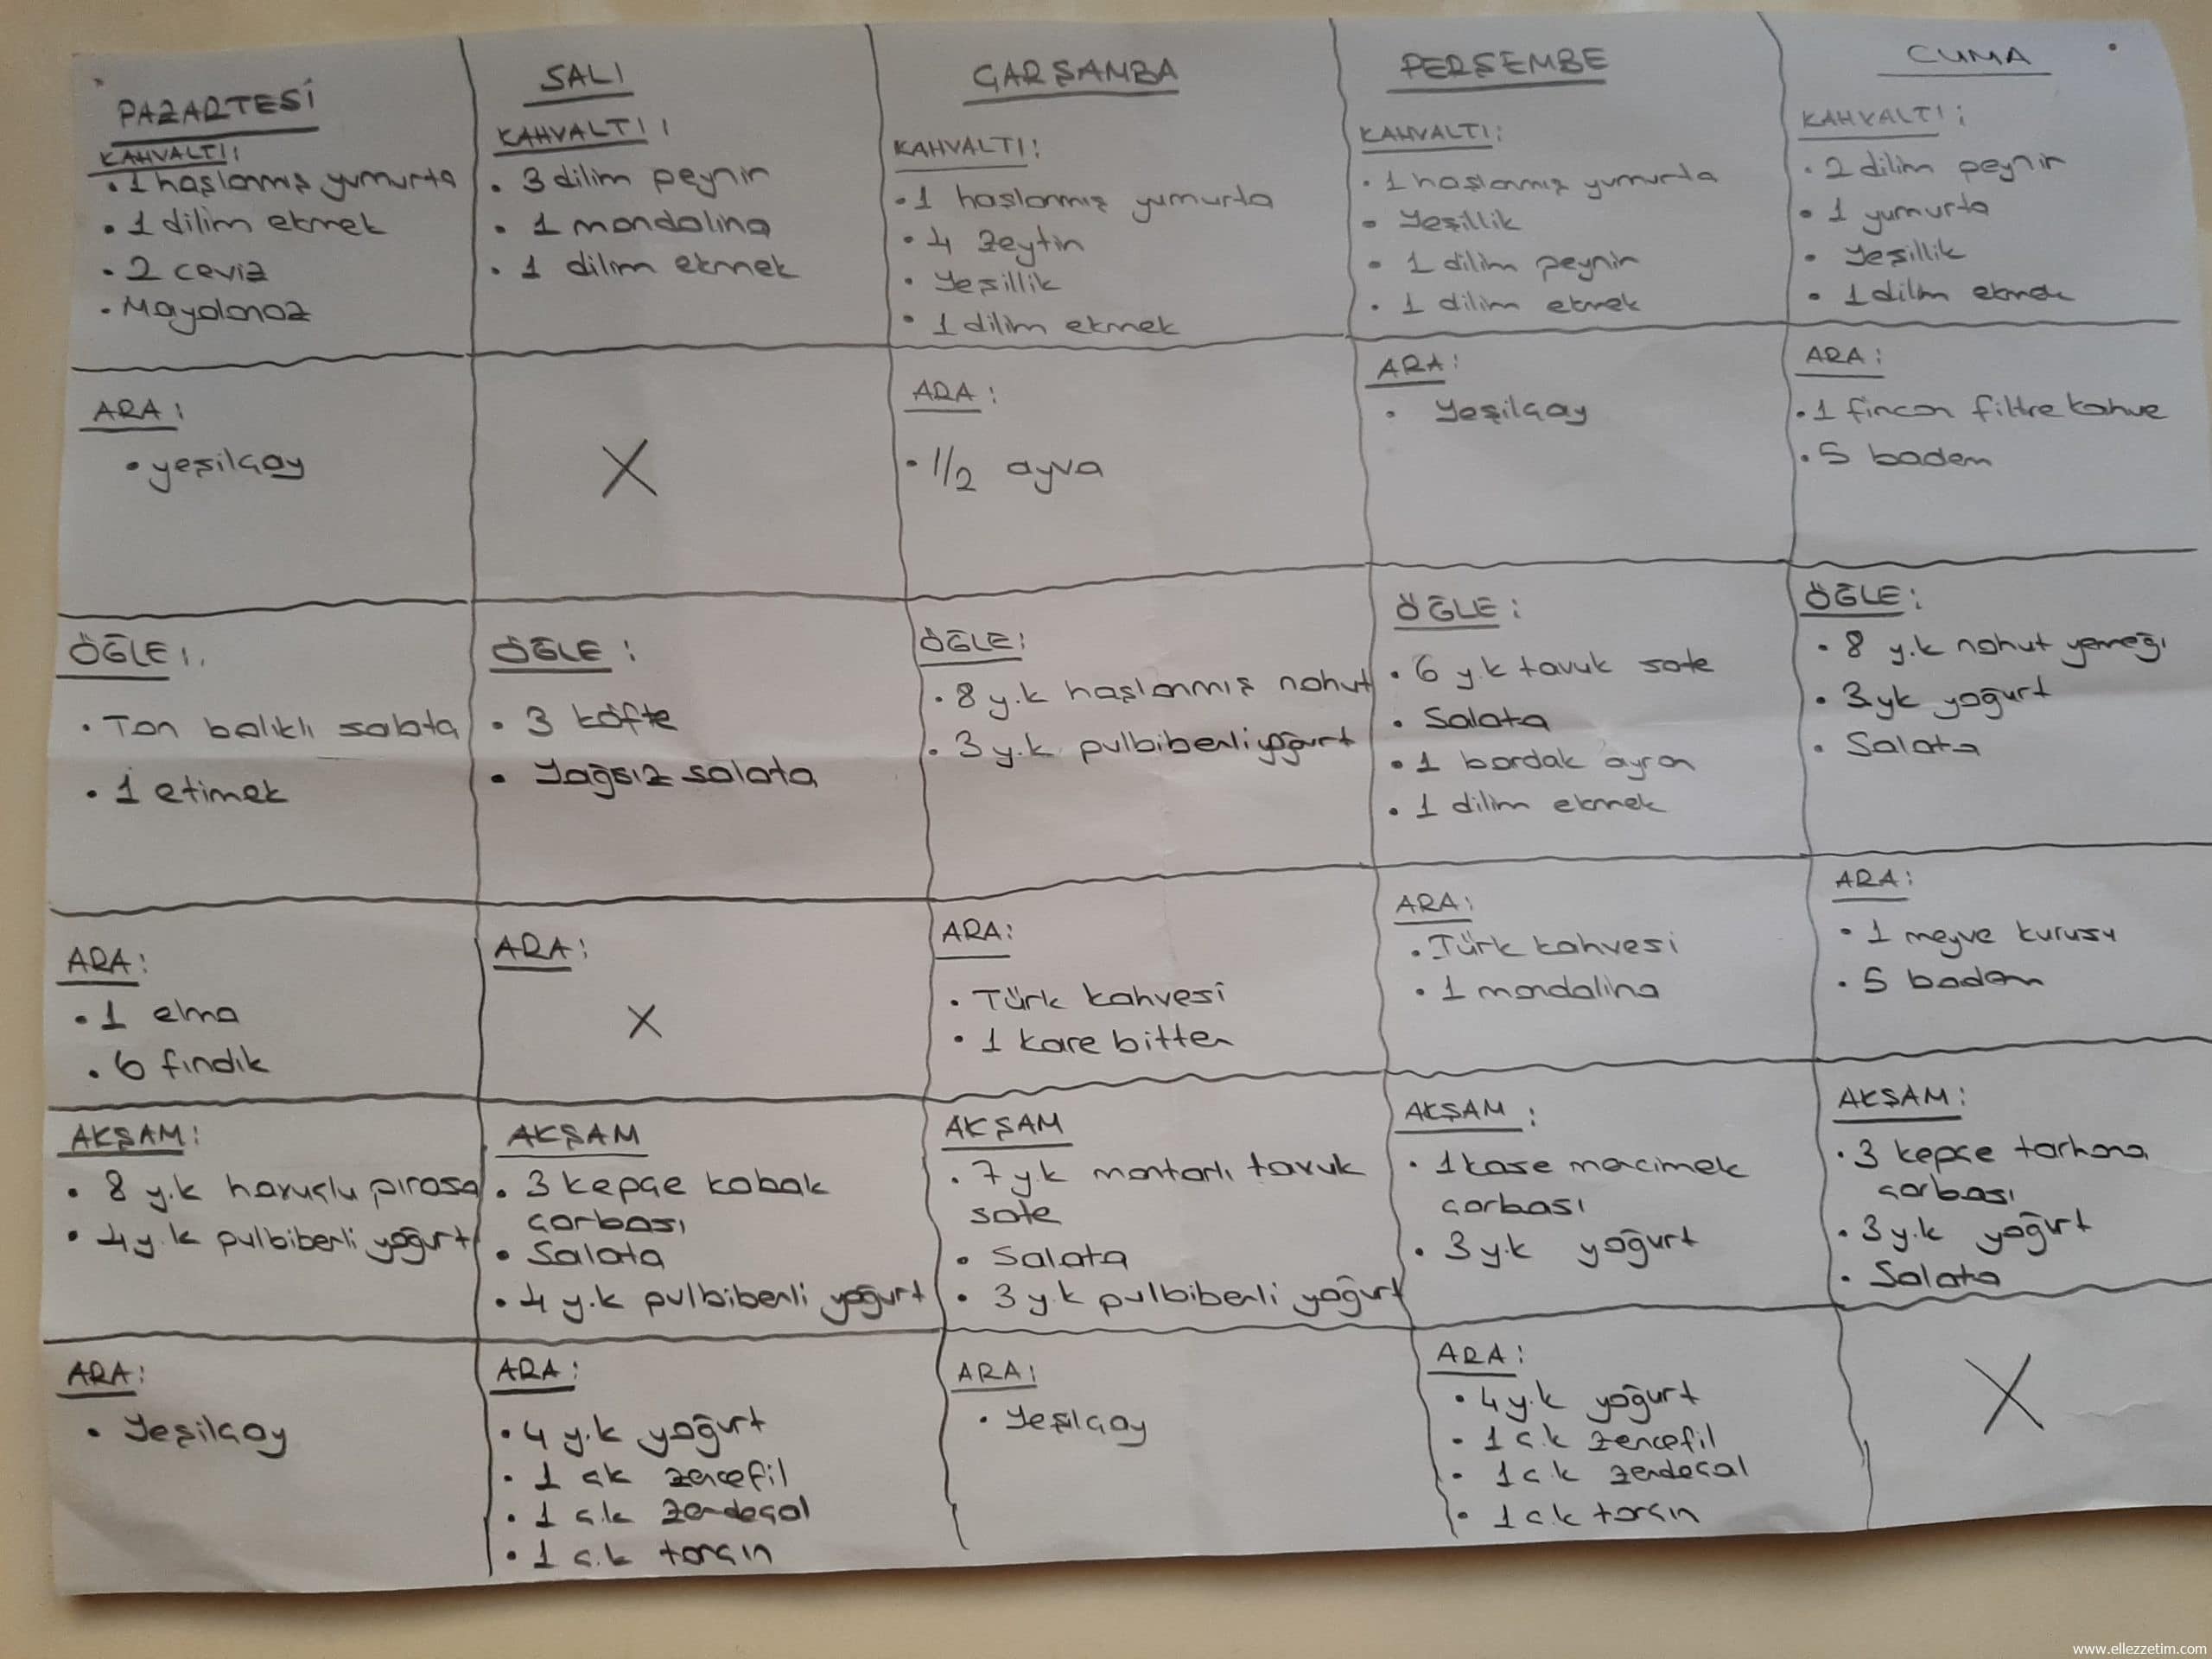 PAZARTESİ
KAHVALTI:
• 1 haşlanmış yumurta
• 1 dilim ekmek
• 2 ceviz
• Maydonoz
SALI
KAHVALTI:
• 3 dilim peynir
• 1 mandalina
• 1 dilim ekmek
ÇARŞAMBA
KAHVALTI:
• 1 haşlanmış yumurta
• 4 zeytin
• Yeşillik
• 1 dilim ekmek
PERŞEMBE
KAHVALTI:
• 1 haşlanmış yumurta
• Yeşillik
• 1 dilim peynir
• 1 dilim ekmek
CUMA
KAHVALTI:
• 2 dilim peynir
• 1 yumurta
• Yeşillik
• 1 dilim ekmek
ARA:
• yeşilçay
X
ARA:
• 1/2 ayva
ARA:
• Yeşilçay
ARA:
• 1 fincan filtre kahve
• 5 badem
ÖĞLE:
• Ton balıklı salata
• 1 etimek
ÖĞLE:
• 3 köfte
• Yağsız salata
ÖĞLE:
• 8 y.k haşlanmış nohut
• 3 y.k pulbiberli yoğurt
ÖĞLE:
• 6 y.k tavuk sote
• Salata
• 1 bardak ayran
• 1 dilim ekmek
ÖĞLE:
• 8 y.k nohut yemeği
• 3 yk yoğurt
• Salata
ARA:
• 1 elma
• 6 fındık
ARA:
X
ARA:
• Türk kahvesi
• 1 kare bitter
ARA:
• Türk kahvesi
• 1 mandalina
ARA:
• 1 meyve kurusu
• 5 badem
AKŞAM:
• 8 y.k havuçlu pırasa
• 4 y.k pulbiberli yoğurt
AKŞAM
• 3 kepçe kabak
çorbası
• Salata
• 4 y.k pulbiberli yoğurt
AKŞAM
• 7 y.k mantarlı tavuk
sote
• Salata
• 3 y.k pulbiberli yoğurt
AKŞAM:
• 1 kase mercimek
çorbası
• 3 y.k yoğurt
AKŞAM:
• 3 kepçe tarhana
çorbası
• 3 y.k yoğurt
• Salata
ARA:
• Yeşilçay
ARA:
• 4 y.k yoğurt
• 1 çk zencefil
• 1 ç.k zerdeçal
• 1 ç.k tarçın
ARA:
• Yeşilçay
ARA:
• 4 y.k yoğurt
• 1 ç.k zencefil
• 1 ç.k zerdeçal
• 1 ç.k tarçın
X
www.ellezzetim.com